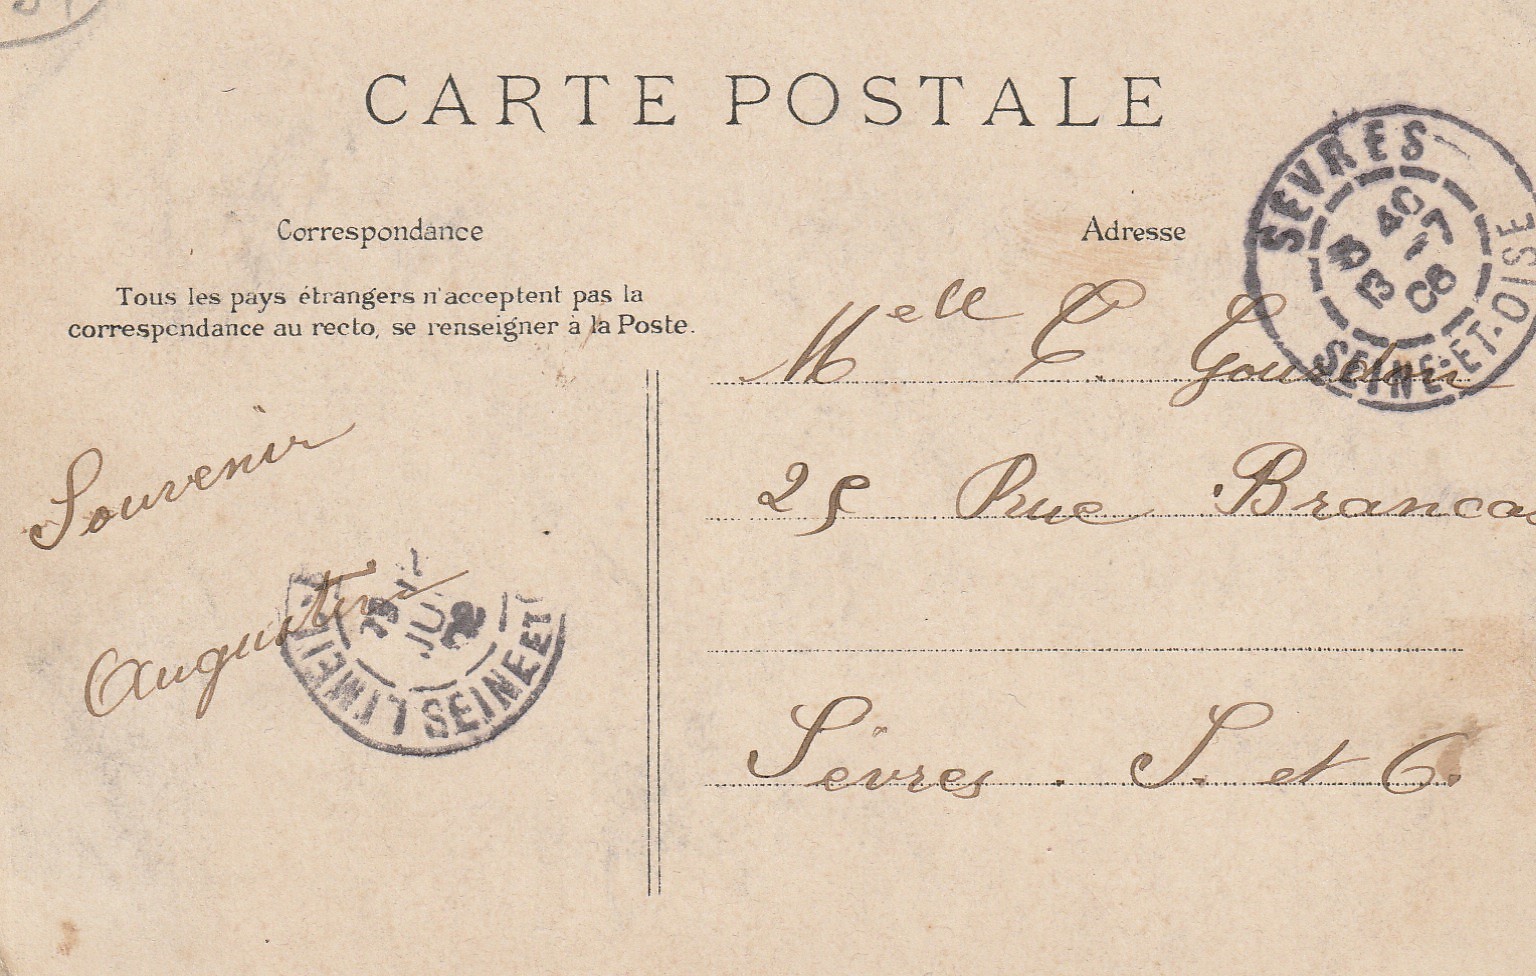 CARTE POSTALE
Correspondance
Tous les pays étrangers n'acceptent pas la
correspondance au recto, se renseigner à la Poste.
Souvenir
Augustine
Adresse
Mell C. Gourdon
25 Rue Brancas
Sèvres. S. et O.
SEVRES
40
13 -7
08
SEINE-ET-OISE
LIMEIL
JU
SEINE ET